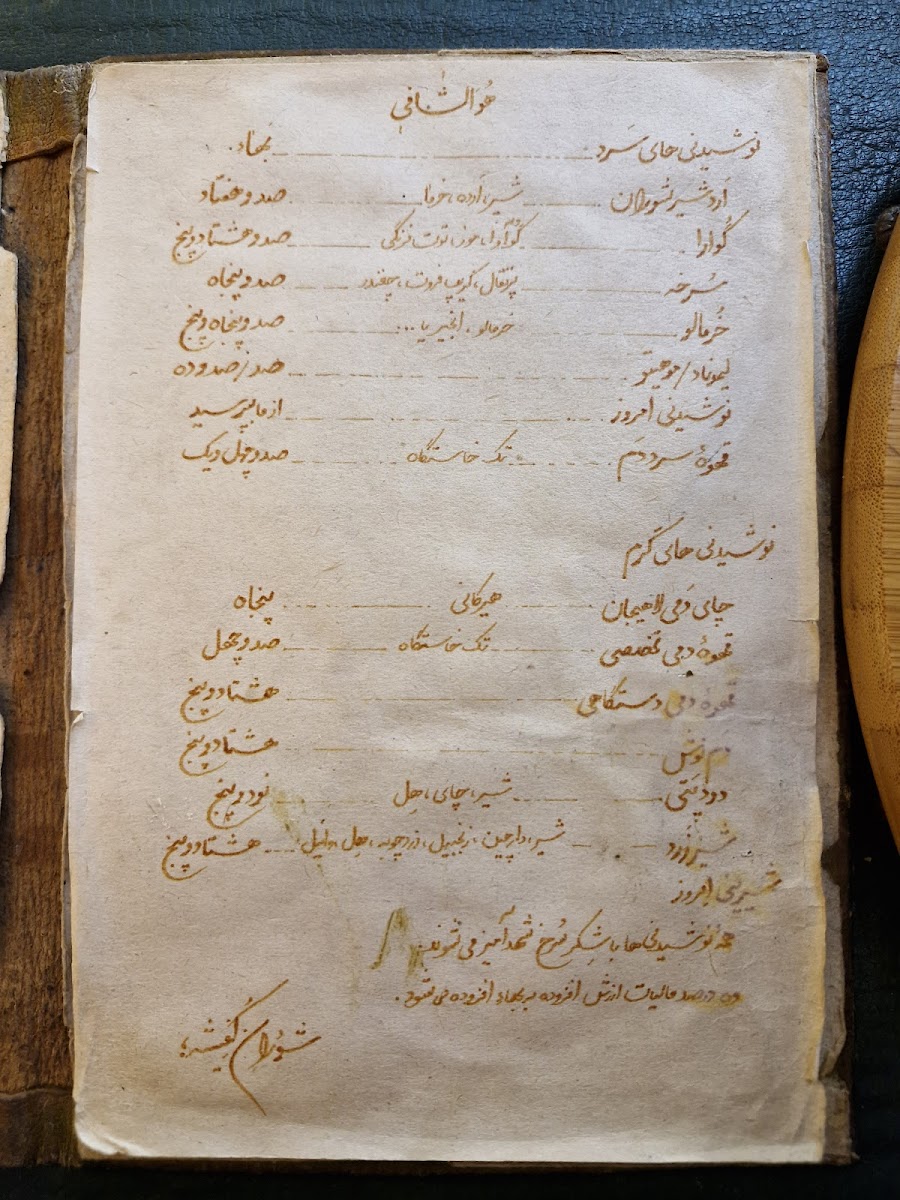 هُو الشافی
نوشیدنی های سَرد ... بهاء
اَردشیر شوران ... شیر، اَرده، خرما ... صد و هفتاد
گوارا ... گوآوا، موز، توت فرنگی ... صد و هشتاد و پنج
سُرخه ... پرتقال، گریپ فروت، چغندر ... صد و پنجاه
خُرمالو ... خرمالو، انجیر یا ... صد و پنجاه و پنج
لیموناد/موهیتو ... صد/صد و ده
نوشیدنی امروز ... از ما بپرسید
قهوهٔ سرد دَم ... تک خاستگاه ... صد و چهل و یک
نوشیدنی های گرم
چای دَمی لاهیجان ... هیرکانی ... پنجاه
قهوهٔ دمی تخصصی ... تک خاستگاه ... صد و چهل
قهوهٔ دمی دستگاهی ... هشتاد و پنج
دَم نوش ... هشتاد و پنج
دود پَتی ... شیر، چای، هِل ... نود و پنج
شیر زَرد ... شیر، دارچین، زنجبیل، زردچوبه، هِل، وانیل ... هشتاد و پنج
شیرینی امروز
همهٔ نوشیدنی‌ها با شِکَر سُرخ شهدآمیز می شوند.
ده درصد مالیات ارزش افزوده بر بهاء افزوده می شود.
شوران